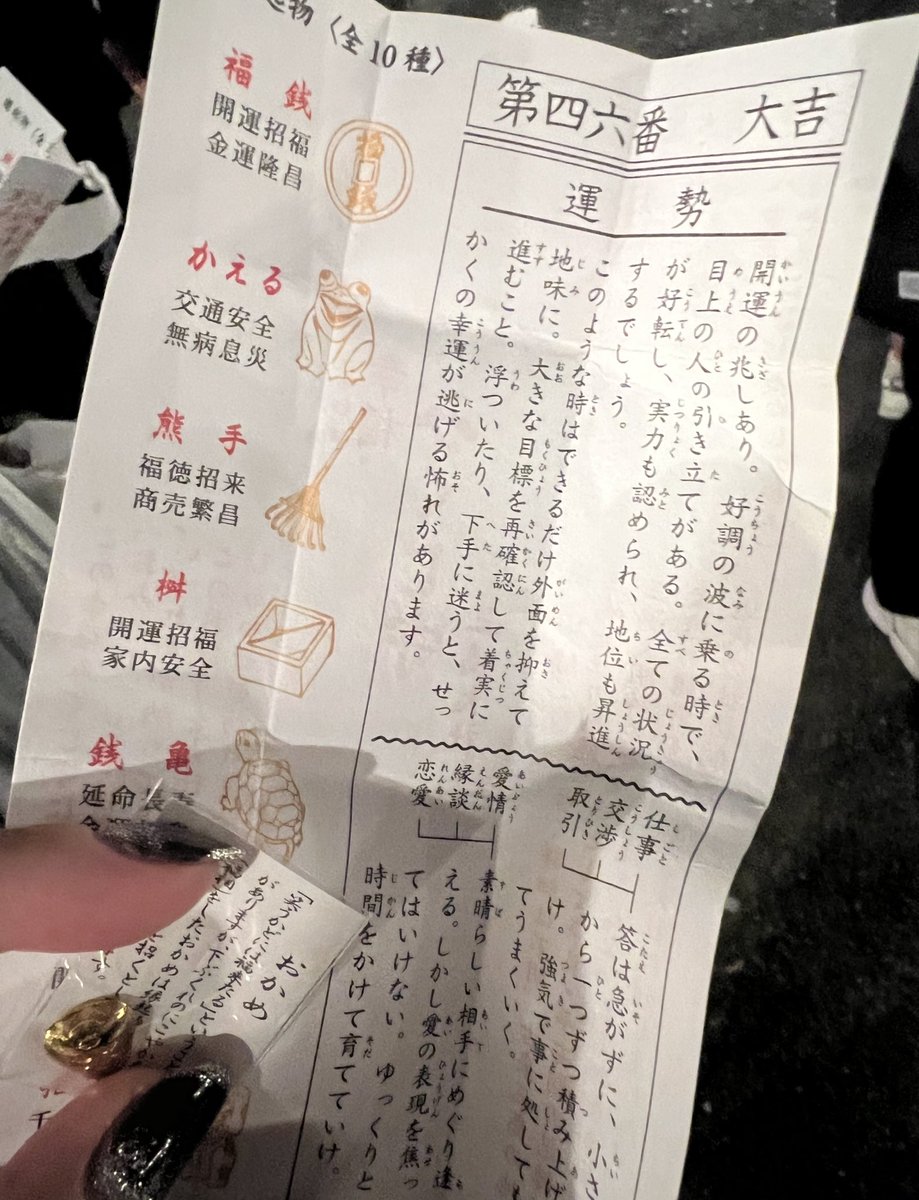 〈全10種〉
福銭
開運招福
金運隆昌
かえる
交通安全
無病息災
熊手
福徳招来
商売繁昌
桝
開運招福
家内安全
銭亀
延命長寿
第四六番 大吉
運勢
開運の兆しあり。好調の波に乗る時で、
目上の人の引き立てがある。全ての状況
が好転し、実力も認められ、地位も昇進
するでしょう。
このような時はできるだけ外面を抑えて
地味に。大きな目標を再確認して着実に
進むこと。浮ついたり、下手に迷うと、せっ
かくの幸運が逃げる怖れがあります。
仕事
交渉
取引
答は急がずに、小さ
から一つずつ積み上げ
け。強気で事に処しても
てうまくいく。
愛情
縁談
恋愛
素晴らしい相手にめぐり逢
える。しかし愛の表現を焦っ
てはいけない。ゆっくりと
時間をかけて育てていけ。
おかめ
「笑うかどには福来たる」という
がありますが、下ぶくれのにこ
をしたおかめは